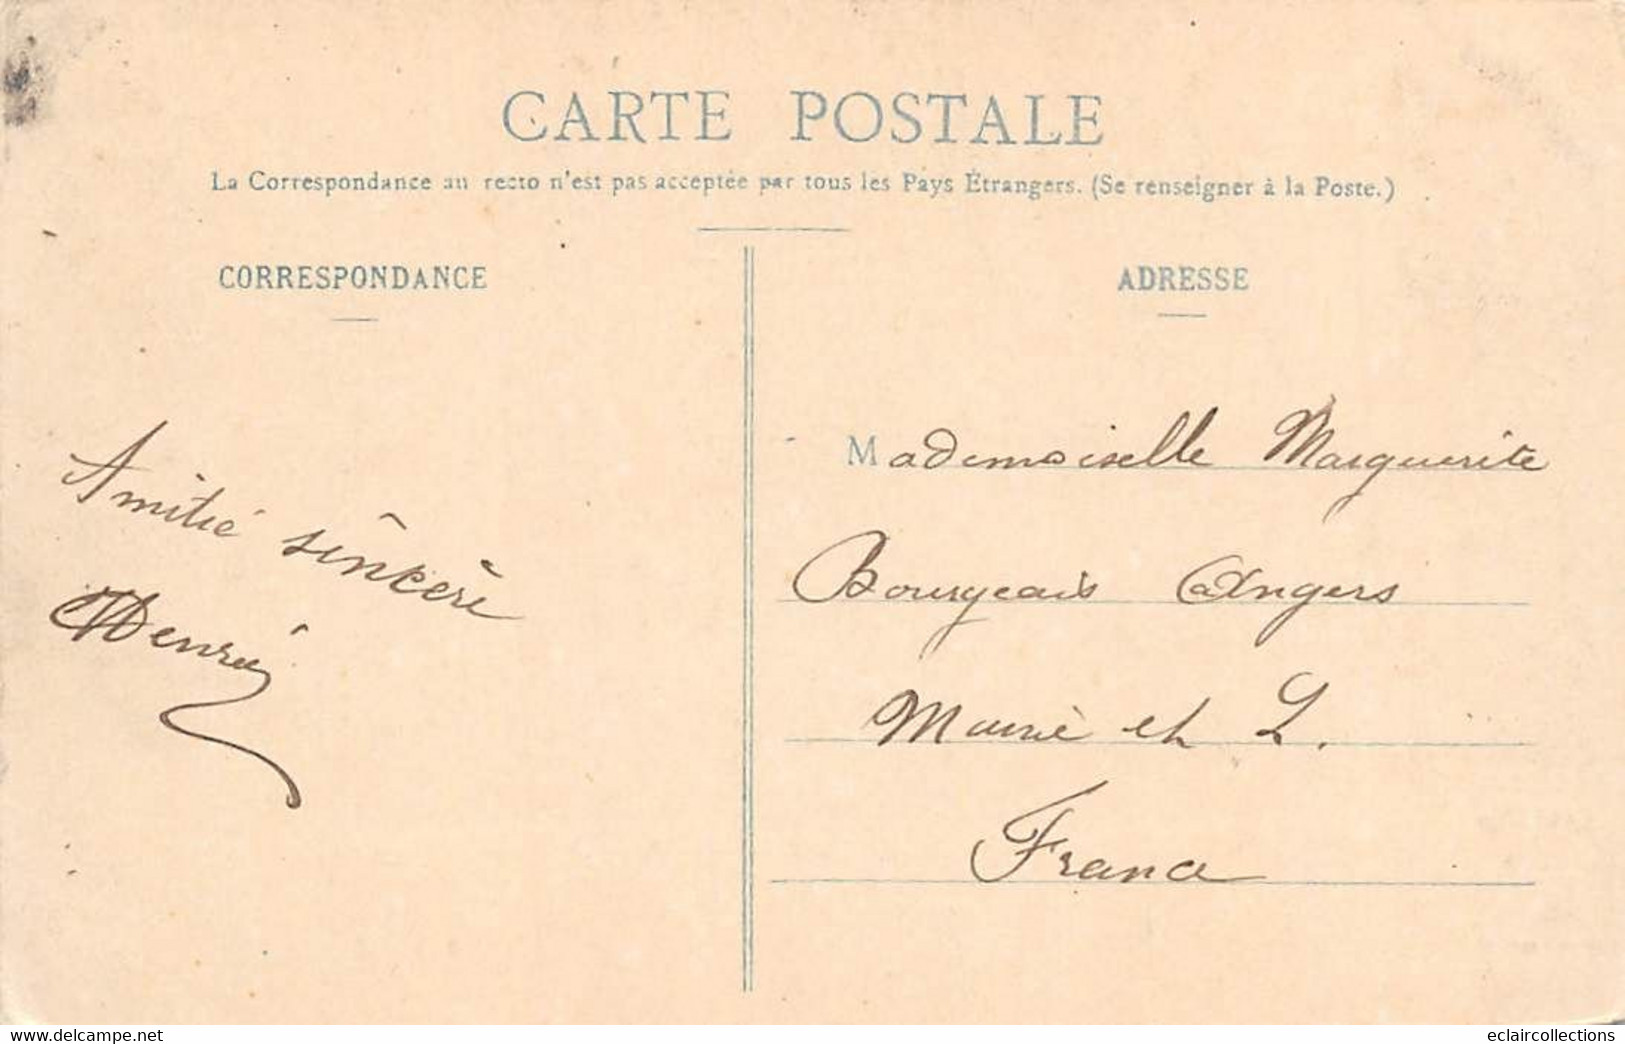 CARTE POSTALE
La Correspondance au recto n'est pas acceptée par tous les Pays Étrangers. (Se renseigner à la Poste.)
CORRESPONDANCE
Amitié sincère
Henri
ADRESSE
Mademoiselle Marguerite
Bourgeais Angers
Maine et L.
France
www.delcampe.net
eclaircollections